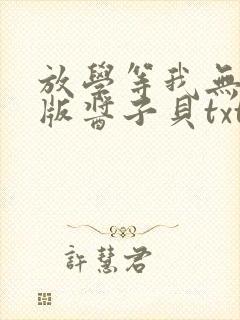 放學等我無
版醬子貝txt
許慧君